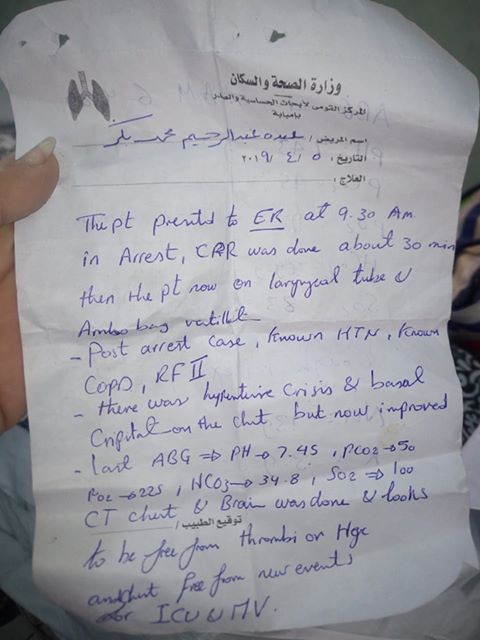 وزارة الصحة والسكان
المركز القومى لأبحاث الحساسية والصدر
بإمبابة
اسم المريض / عبده عبدالرحيم محمد بكر
التاريخ : ٥ / ٤ / ٢٠١٩
العلاج :
The pt presented to ER at 9.30 Am
in Arrest, CPR was done about 30 min
then the pt now on laryngeal tube &
Ambo bag
- Post arrest case, Known HTN, Known
COPD, RF II
- there was hypertensive Crisis & basal
Cripitation on the chest but now improved
- last ABG ⇒ PH → 7.45, PCO2 → 50
PO2 → 225, HCO3 → 34.8, SO2 ⇒ 100
CT chest & Brain was done & looks
توقيع الطبيب /
to be free from thrombi or Hge
free from new events
for ICU & MV.